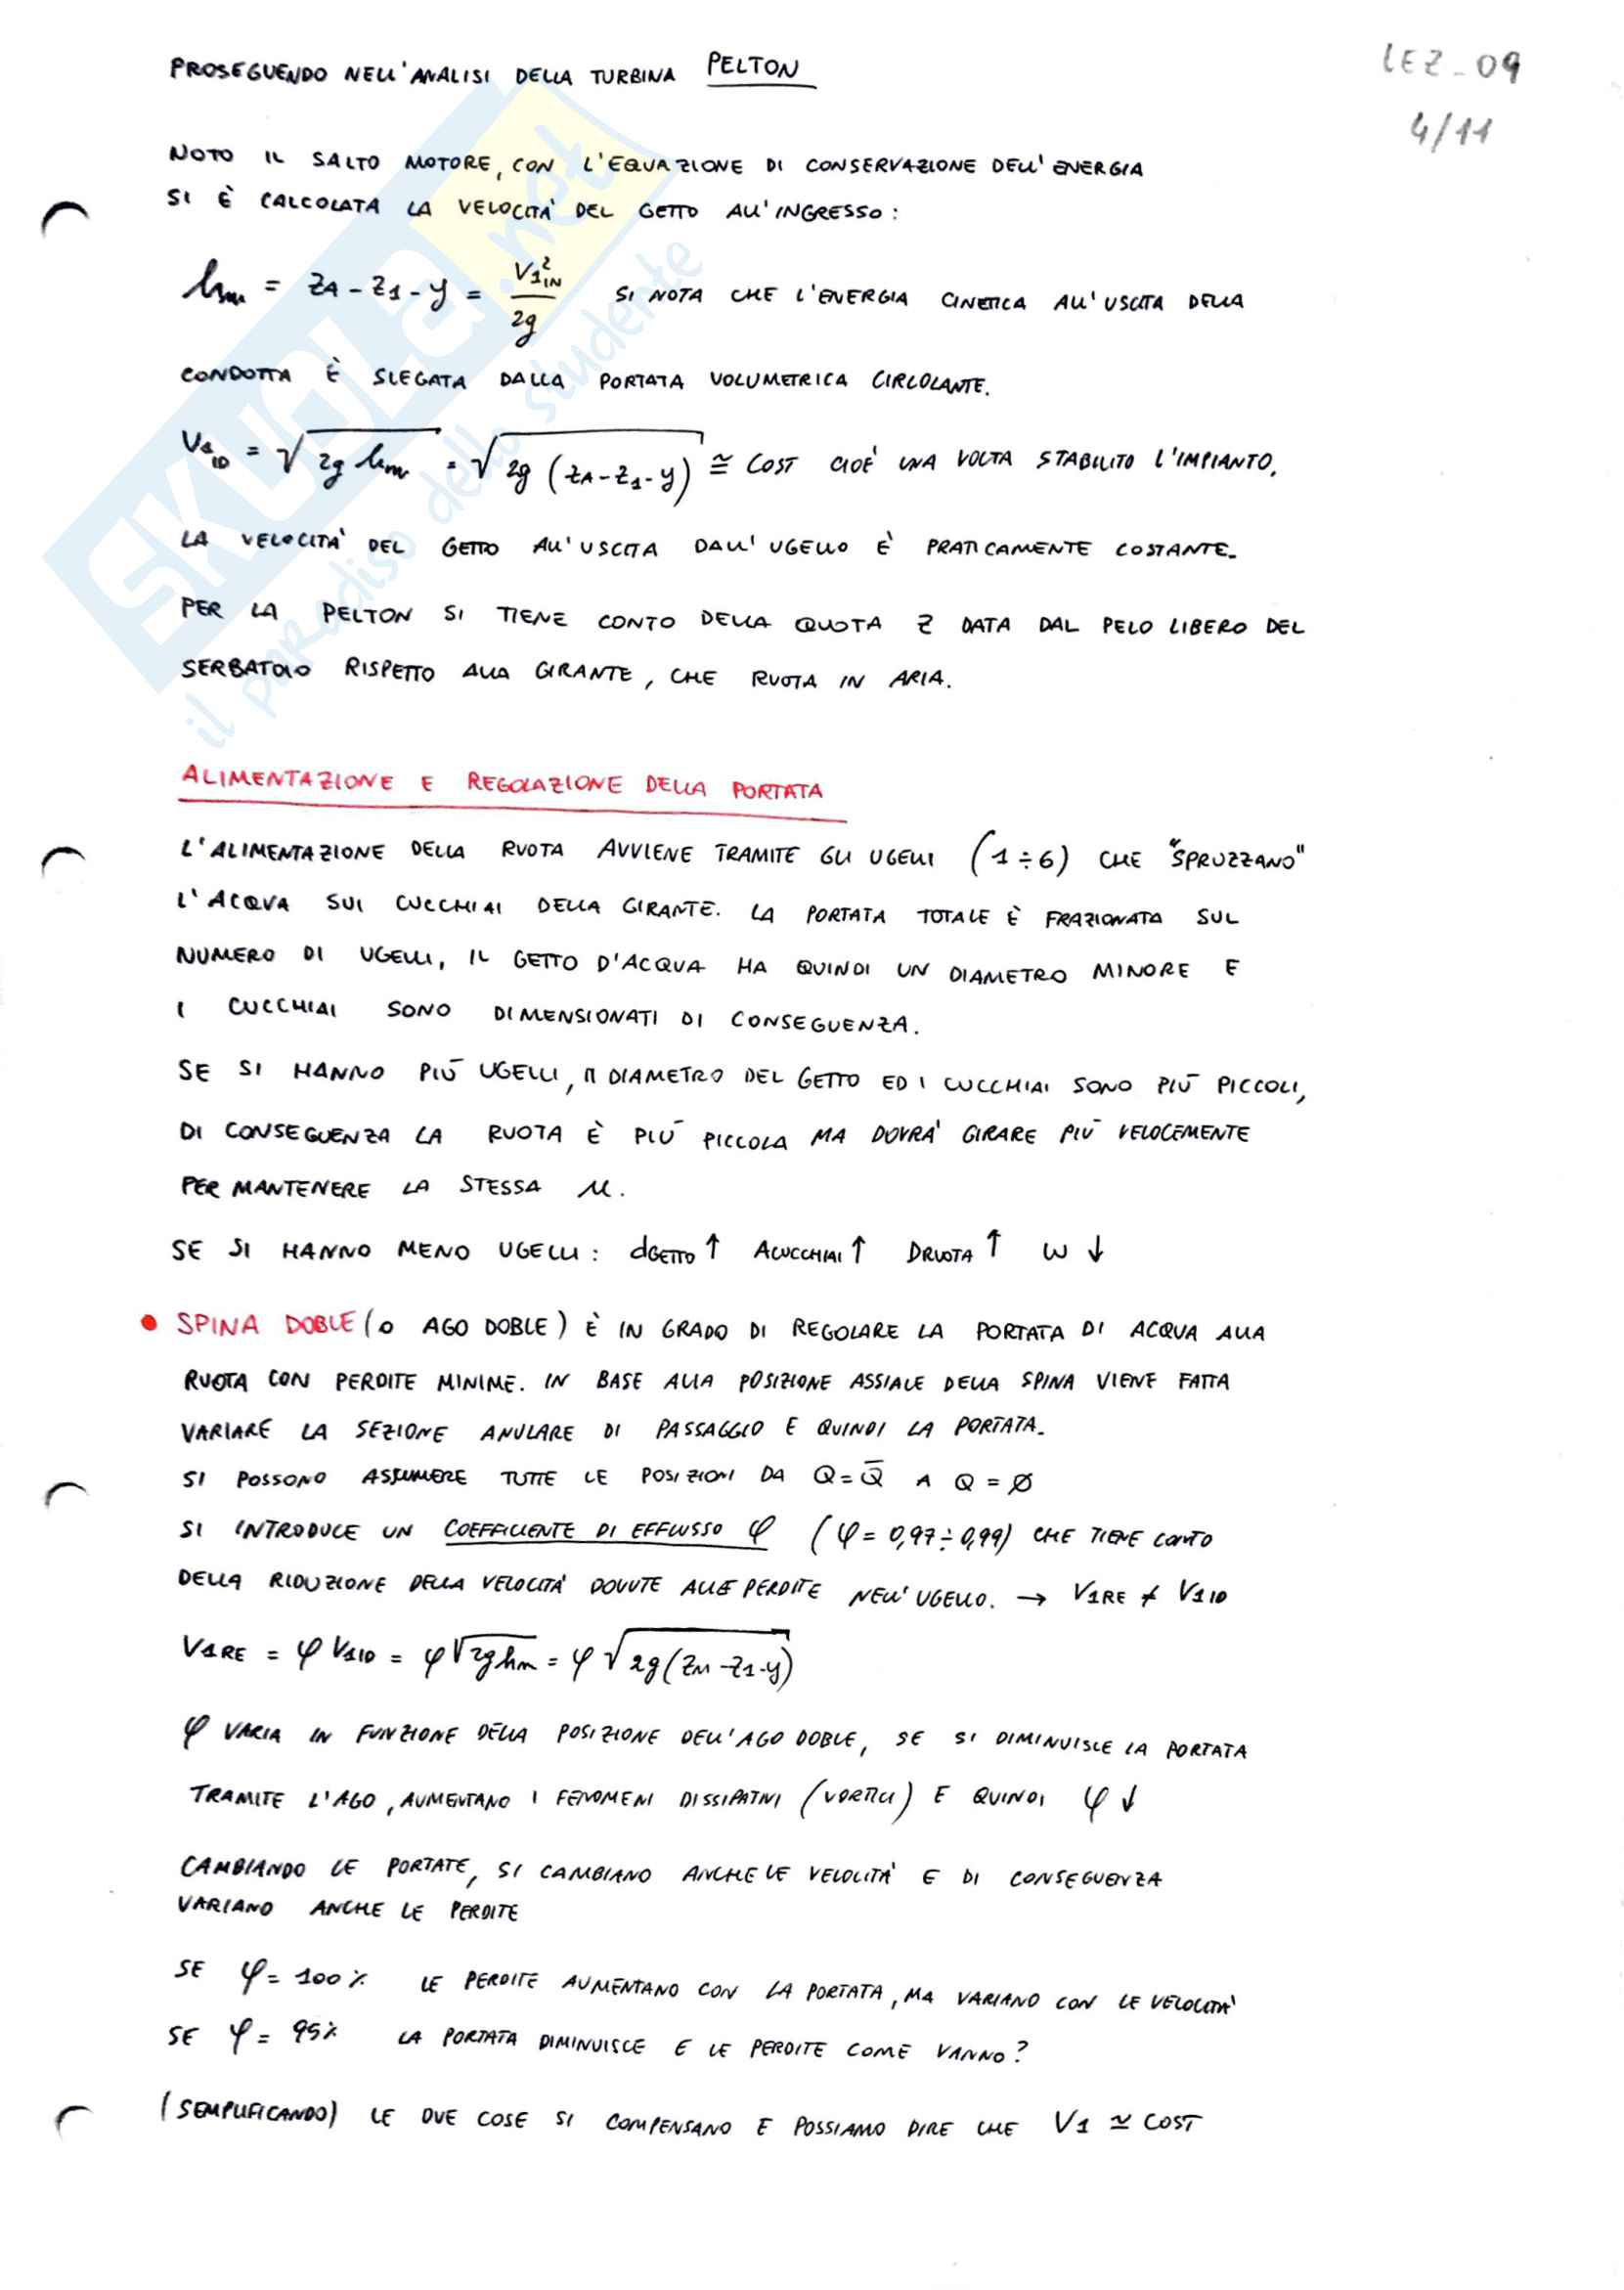 PROSEGUENDO NELL'ANALISI DELLA TURBINA PELTON
LEZ_09
4/11
NOTO IL SALTO MOTORE, CON L'EQUAZIONE DI CONSERVAZIONE DELL'ENERGIA
SI È CALCOLATA LA VELOCITÀ DEL GETTO ALL'INGRESSO:
hm = ZA - Z1 - y = V1IN² / 2g SI NOTA CHE L'ENERGIA CINETICA ALL'USCITA DELLA
CONDOTTA È SLEGATA DALLA PORTATA VOLUMETRICA CIRCOLANTE.
V1ID = √(2g hm) = √(2g (ZA - Z1 - y)) ≅ COST CIOÈ UNA VOLTA STABILITO L'IMPIANTO,
LA VELOCITÀ DEL GETTO ALL'USCITA DALL'UGELLO È PRATICAMENTE COSTANTE.
PER LA PELTON SI TIENE CONTO DELLA QUOTA Z DATA DAL PELO LIBERO DEL
SERBATOIO RISPETTO ALLA GIRANTE, CHE RUOTA IN ARIA.
ALIMENTAZIONE E REGOLAZIONE DELLA PORTATA
L'ALIMENTAZIONE DELLA RUOTA AVVIENE TRAMITE GLI UGELLI (1÷6) CHE "SPRUZZANO"
L'ACQUA SUI CUCCHIAI DELLA GIRANTE. LA PORTATA TOTALE È FRAZIONATA SUL
NUMERO DI UGELLI, IL GETTO D'ACQUA HA QUINDI UN DIAMETRO MINORE E
I CUCCHIAI SONO DIMENSIONATI DI CONSEGUENZA.
SE SI HANNO PIÙ UGELLI, IL DIAMETRO DEL GETTO ED I CUCCHIAI SONO PIÙ PICCOLI,
DI CONSEGUENZA LA RUOTA È PIÙ PICCOLA MA DOVRÀ GIRARE PIÙ VELOCEMENTE
PER MANTENERE LA STESSA u.
SE SI HANNO MENO UGELLI: dGETTO ↑ ACUCCHIAI ↑ DRUOTA ↑ ω ↓
• SPINA DOBLE (O AGO DOBLE) È IN GRADO DI REGOLARE LA PORTATA DI ACQUA ALLA
RUOTA CON PERDITE MINIME. IN BASE ALLA POSIZIONE ASSIALE DELLA SPINA VIENE FATTA
VARIARE LA SEZIONE ANULARE DI PASSAGGIO E QUINDI LA PORTATA.
SI POSSONO ASSUMERE TUTTE LE POSIZIONI DA Q = Q̄ A Q = Ø
SI INTRODUCE UN COEFFICIENTE DI EFFLUSSO φ (φ = 0,97 ÷ 0,99) CHE TIENE CONTO
DELLA RIDUZIONE DELLA VELOCITÀ DOVUTE ALLE PERDITE NELL'UGELLO. → V1RE ≠ V1ID
V1RE = φ V1ID = φ √(2g hm) = φ √(2g (ZM - Z1 - y))
φ VARIA IN FUNZIONE DELLA POSIZIONE DELL'AGO DOBLE, SE SI DIMINUISCE LA PORTATA
TRAMITE L'AGO, AUMENTANO I FENOMENI DISSIPATIVI (VORTICI) E QUINDI φ ↓
CAMBIANDO LE PORTATE, SI CAMBIANO ANCHE LE VELOCITÀ E DI CONSEGUENZA
VARIANO ANCHE LE PERDITE
SE φ = 100% LE PERDITE AUMENTANO CON LA PORTATA, MA VARIANO CON LE VELOCITÀ
SE φ = 95% LA PORTATA DIMINUISCE E LE PERDITE COME VANNO?
(SEMPLIFICANDO) LE DUE COSE SI COMPENSANO E POSSIAMO DIRE CHE V1 ≃ COST
SKUOLA.net
il paradiso dello studente